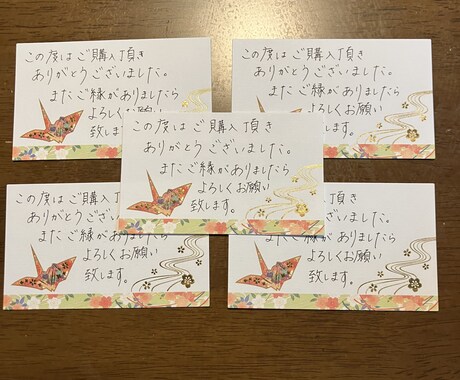 この度はご購入頂き
ありがとうございました。
またご縁がありましたら
よろしくお願い
致します。
この度はご購入頂き
ありがとうございました。
またご縁がありましたら
よろしくお願い
致します。
この度はご購入頂き
ありがとうございました。
またご縁がありましたら
よろしくお願い
致します。
この度はご購入
ありがとうござい
またご縁があり
よろしくお願い
致します。
頂き
いました。
ましたら
よろしくお願い
致します。